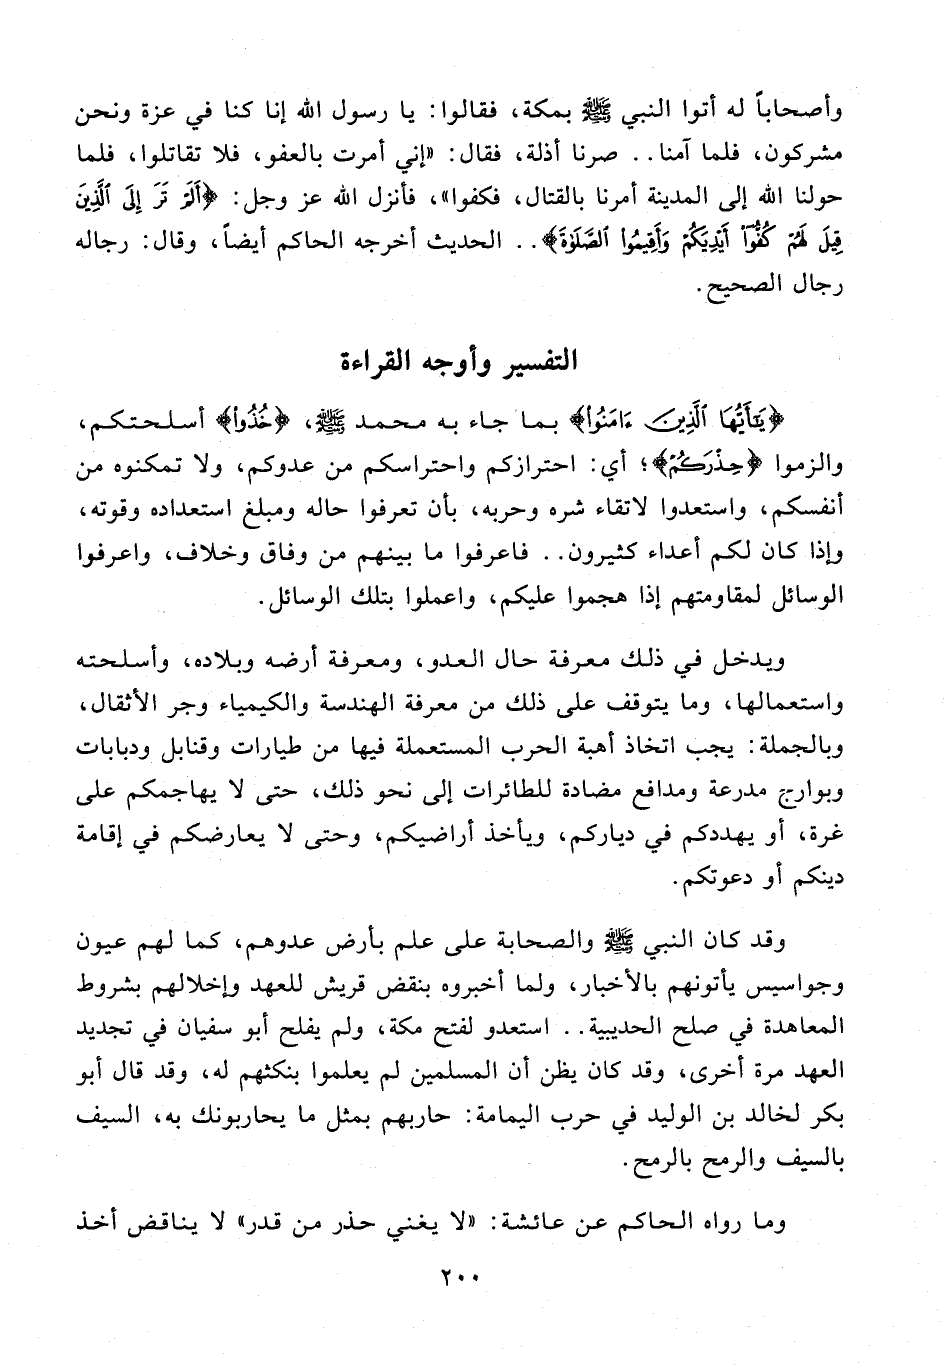 وأصحاباً له أتوا النبي ﷺ بمكة، فقالوا: يا رسول الله إنا كنا في عزة ونحن
مشركون، فلما آمنا.. صرنا أذلة، فقال: «إني أمرت بالعفو، فلا تقاتلوا، فلما
حولنا الله إلى المدينة أمرنا بالقتال، فكفوا»، فأنزل الله عز وجل: ﴿أَلَمْ تَرَ إِلَى ٱلَّذِينَ
قِيلَ لَهُمْ كُفُّوٓا۟ أَيْدِيَكُمْ وَأَقِيمُوا۟ ٱلصَّلَوٰةَ﴾.. الحديث أخرجه الحاكم أيضاً، وقال: رجاله
رجال الصحيح.
التفسير وأوجه القراءة
﴿يَٰٓأَيُّهَا ٱلَّذِينَ ءَامَنُوا۟﴾ بما جاء به محمد ﷺ، ﴿خُذُوا۟﴾ أسلحتكم،
والزموا ﴿حِذْرَكُمْ﴾؛ أي: احترازكم واحتراسكم من عدوكم، ولا تمكنوه من
أنفسكم، واستعدوا لاتقاء شره وحربه، بأن تعرفوا حاله ومبلغ استعداده وقوته،
وإذا كان لكم أعداء كثيرون.. فاعرفوا ما بينهم من وفاق وخلاف، واعرفوا
الوسائل لمقاومتهم إذا هجموا عليكم، واعملوا بتلك الوسائل.
ويدخل في ذلك معرفة حال العدو، ومعرفة أرضه وبلاده، وأسلحته
واستعمالها، وما يتوقف على ذلك من معرفة الهندسة والكيمياء وجر الأثقال،
وبالجملة: يجب اتخاذ أهبة الحرب المستعملة فيها من طيارات وقنابل ودبابات
وبوارج مدرعة ومدافع مضادة للطائرات إلى نحو ذلك، حتى لا يهاجمكم على
غرة، أو يهددكم في دياركم، ويأخذ أراضيكم، وحتى لا يعارضكم في إقامة
دينكم أو دعوتكم.
وقد كان النبي ﷺ والصحابة على علم بأرض عدوهم، كما لهم عيون
وجواسيس يأتونهم بالأخبار، ولما أخبروه بنقض قريش للعهد وإخلالهم بشروط
المعاهدة في صلح الحديبية.. استعدو لفتح مكة، ولم يفلح أبو سفيان في تجديد
العهد مرة أخرى، وقد كان يظن أن المسلمين لم يعلموا بنكثهم له، وقد قال أبو
بكر لخالد بن الوليد في حرب اليمامة: حاربهم بمثل ما يحاربونك به، السيف
بالسيف والرمح بالرمح.
وما رواه الحاكم عن عائشة: «لا يغني حذر من قدر» لا يناقض أخذ
٢٠٠